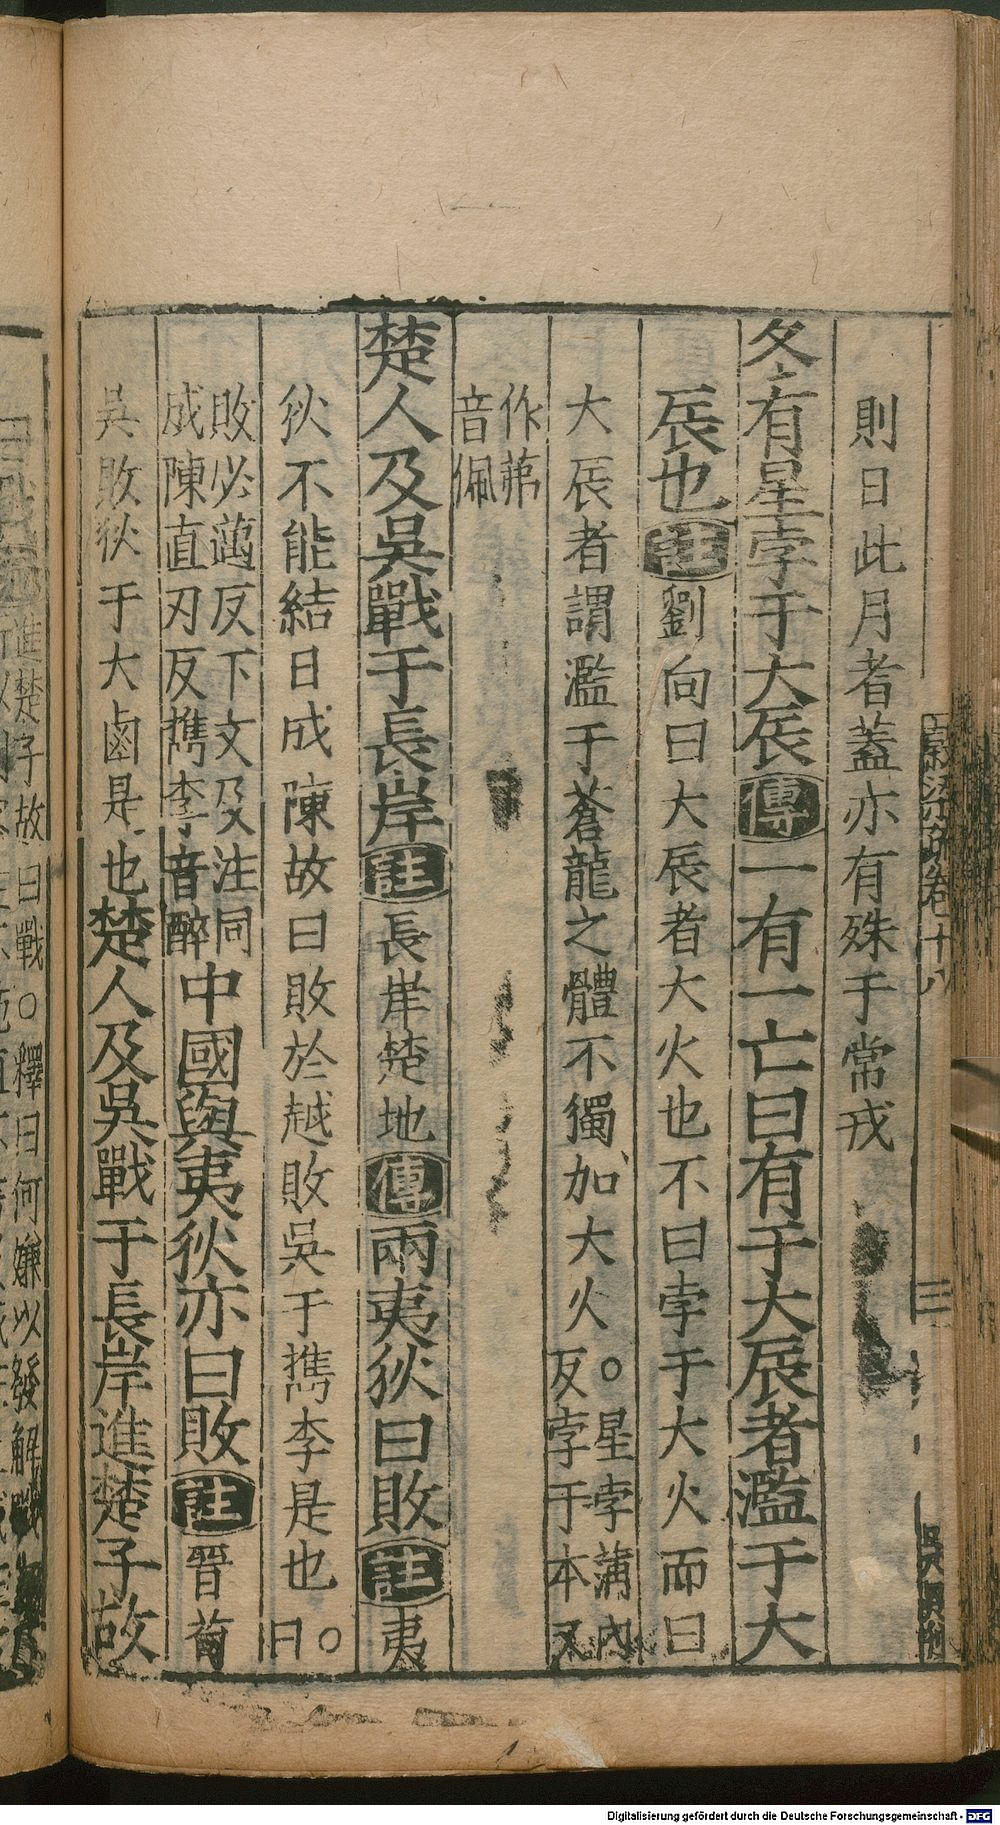 則日此月者蓋亦有殊乎常戎
冬有星孛于大辰傳一有一亡曰有于大辰者濫于大
辰也註劉向曰大辰者大火也不曰孛于大火而曰
大辰者謂濫于蒼龍之體不獨加大火○星孛蒲內反孛于本又
作茀音佩
楚人及吳戰于長岸註長岸楚地傳兩夷狄曰敗註夷
狄不能結日成陳故曰敗於越敗吳于檇李是也○曰
敗必邁反下文及注同成陳直刃反檇李音醉中國與夷狄亦曰敗註晉荀
吳敗狄于大鹵是也楚人及吳戰于長岸進楚子故
穀梁疏卷十八
三
進楚子故曰戰○釋曰何嫌以發解
Digitalisierung gefördert durch die Deutsche Forschungsgemeinschaft - DFG